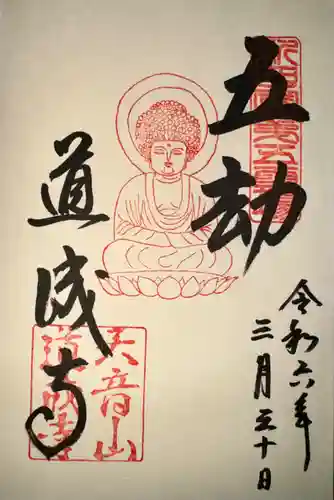 五劫
道成寺
天音山
道成寺
令和六年
三月三十日